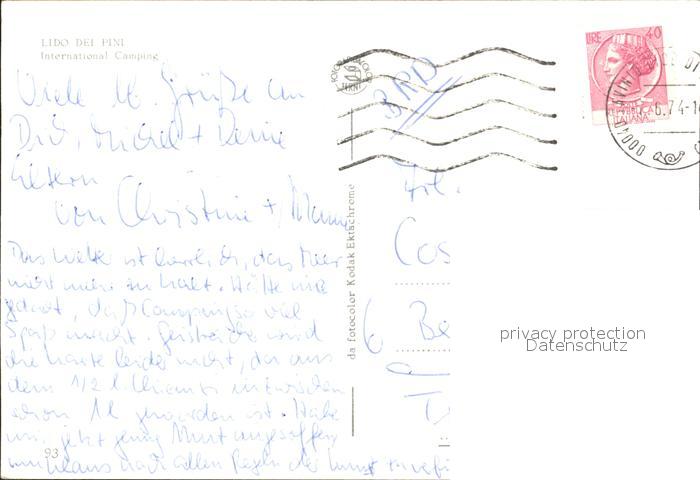 LIDO DEI PINI
International Camping
LIRE 40
REPUBBLICA
ITALIANA
.6.74-1
00040
BRD
Viele lb. Grüße an
Dich, Michel + Deine
Eltern
von Christine +
Das Wetter ist herrlich, das Meer
nicht mehr zu kalt. Hätte nie
gedacht, daß Camping so viel
Spaß macht. Geistreich wird
die Karte leider nicht, da aus
dem 1/2 l Chianti inzwischen
schon 1 l geworden ist. Habe
mir jetzt genug Mut angesoffen
um nach allen Regeln der Kunst
93
da fotocolor Kodak Ektachrome
Frl.
Cos
6 Be
privacy protection
Datenschutz